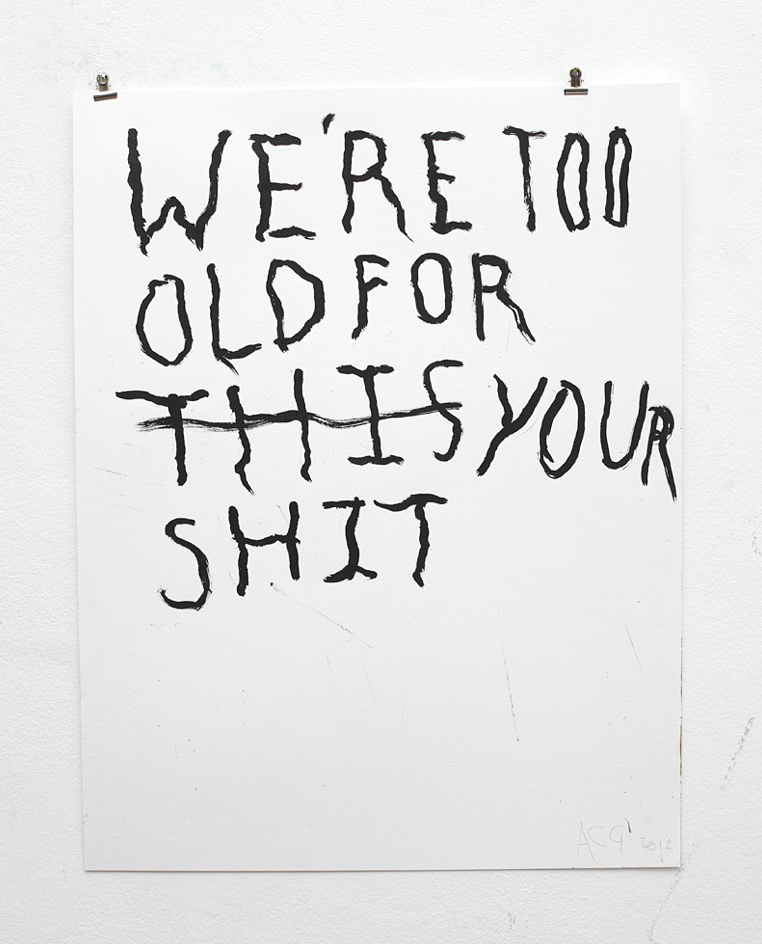 WE'RE TOO
OLD FOR
~~THIS~~ YOUR
SHIT
ACG 2012